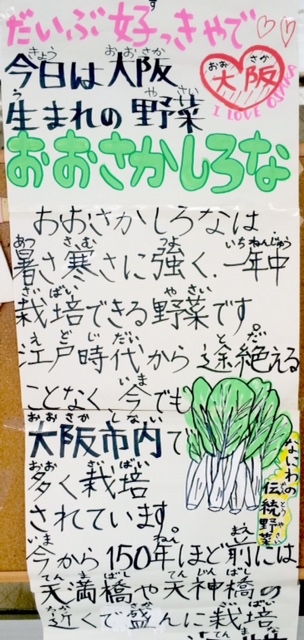 だいぶ好っきゃで♡♡
今日は大阪
大阪
I LOVE OSAKA
生まれの野菜
おおさかしろな
おおさかしろなは
暑さ寒さに強く、一年中
栽培できる野菜です。
江戸時代から途絶える
ことなく、今でも
大阪市内で
多く栽培
されています。
なにわの
伝統野菜
今から150年ほど前には
天満橋や天神橋の
近くで盛んに栽培